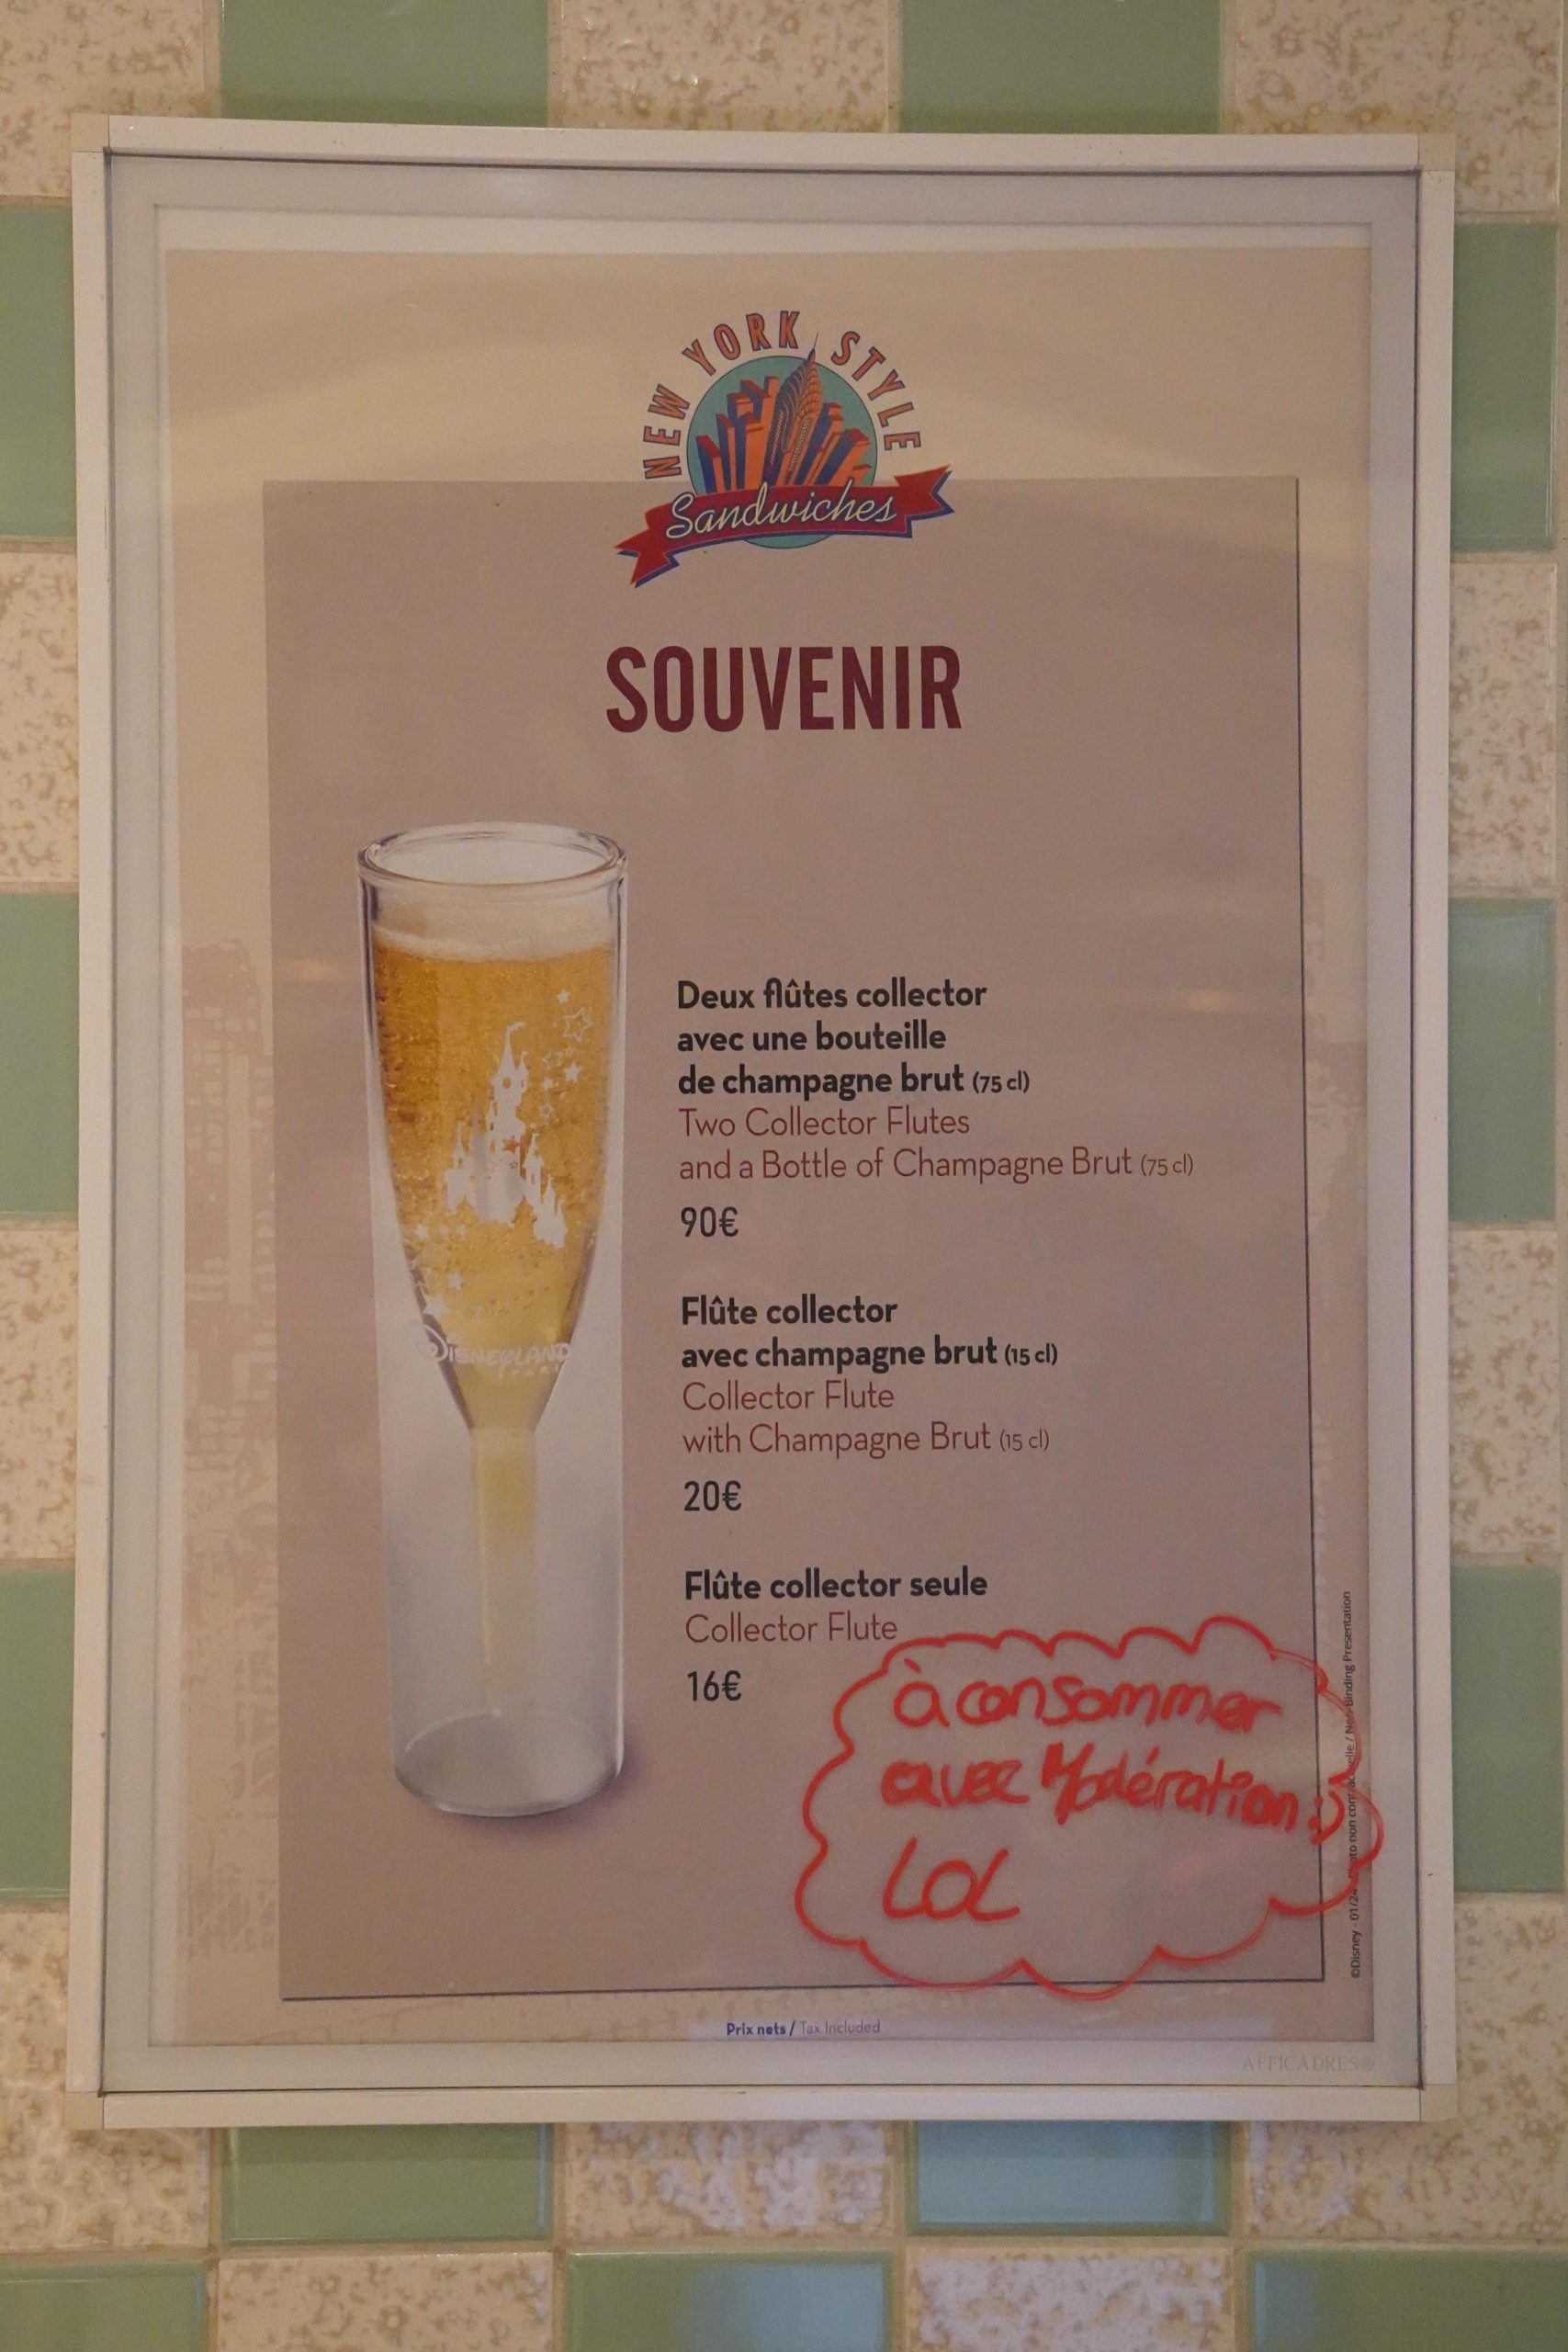 NEW YORK STYLE
NY
Sandwiches
SOUVENIR
Deux flûtes collector
avec une bouteille
de champagne brut (75 cl)
Two Collector Flutes
and a Bottle of Champagne Brut (75 cl)
90€
Flûte collector
avec champagne brut (15 cl)
Collector Flute
with Champagne Brut (15 cl)
20€
Flûte collector seule
Collector Flute
16€
DISNEYLAND
à consommer
avec Modération :)
LOL
©Disney - 01/24 - Photo non contractuelle / Non Binding Presentation
Prix nets / Tax Included
AFFICADRES®